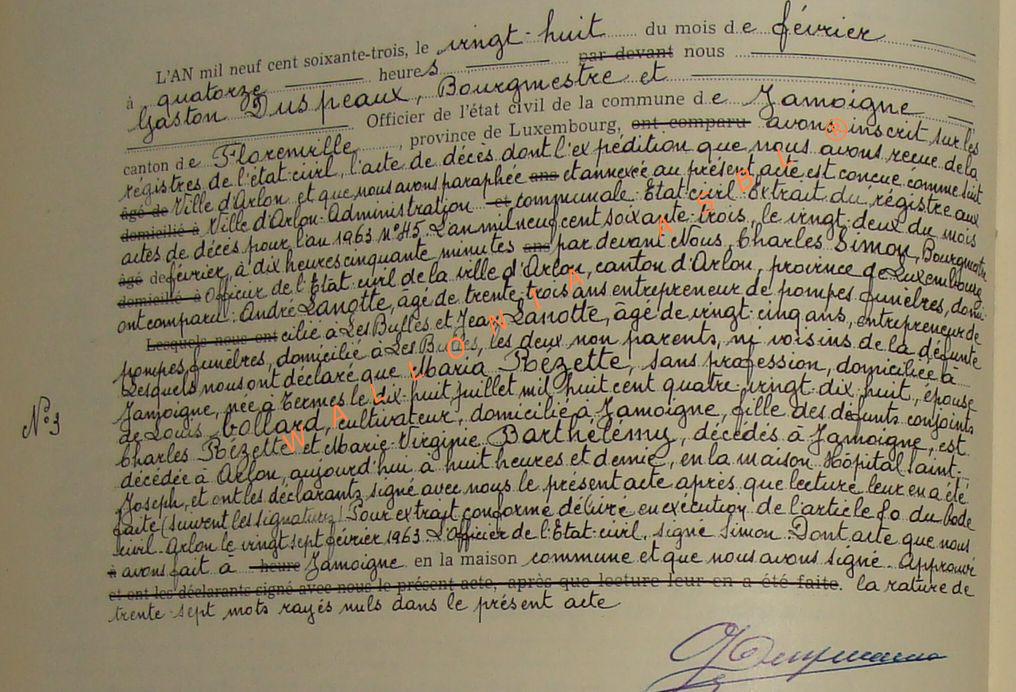 L'AN mil neuf cent soixante-trois, le vingt-huit du mois de février
à quatorze heures par devant nous
Gaston Duspeaux, Bourgmestre et
Officier de l'état civil de la commune de Jamoigne
canton de Florenville, province de Luxembourg, ont comparu avons inscrit sur les
régistres de l'état-civil, l'acte de décès dont l'expédition que nous avons reçue de la
âgé de Ville d'Arlon et que nous avons paraphée ans et annexée au présent acte est conçue comme suit
domicilié à Ville d'Arlon. Administration et communale. Etat-civil. Extrait du régistre aux
actes de décès pour l'an 1963 N°45. L'an mil neuf cent soixante-trois, le vingt-deux du mois
âgé de février, à dix heures cinquante minutes ans par devant Nous, Charles Simon, Bourgmestre
domicilié à Officier de l'Etat-civil de la ville d'Arlon, canton d'Arlon, province de Luxembourg
ont comparu: André Lanotte, âgé de trente-trois ans entrepreneur de pompes funèbres, domi-
Lesquels nous ont cilié à Les Bulles et Jean Lanotte, âgé de vingt-cinq ans, entrepreneur de
pompes funèbres, domicilié à Les Bulles, les deux non parents, ni voisins de la défunte
Lesquels nous ont déclaré que Maria Rézette, sans profession, domiciliée à
Jamoigne, née à Termes le dix-huit juillet mil huit cent quatre-vingt dix huit, épouse
de Louis Collard, cultivateur, domicilié à Jamoigne, fille des défunts conjoints
N°3
Charles Rézette et Marie Virginie Barthélémy, décédés à Jamoigne, est
décédée à Arlon, aujourd'hui à huit heures et demie, en la maison Hôpital Saint-
Joseph, et ont les déclarants signé avec nous le présent acte après que lecture leur en a été
faite (suivent les signatures) Pour extrait conforme délivré en exécution de l'article 80 du Code
civil. Arlon le vingt sept février 1963. L'Officier de l'Etat-civil, signé Simon. Dont acte que nous
à avons fait à heure Jamoigne en la maison commune et que nous avons signé. Approuvé
et ont les déclarants signé avec nous le présent acte, après que lecture leur en a été faite. la rature de
trente-sept mots rayés nuls dans le présent acte
WALLONIA ASBL ®